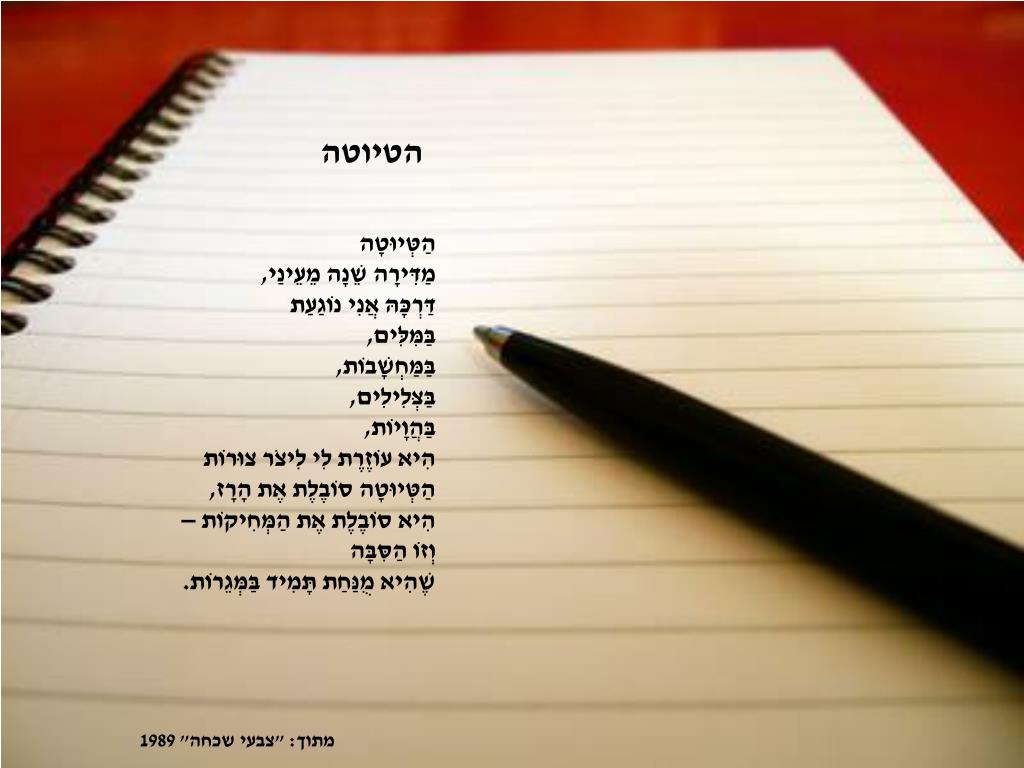 הטיוטה
הַטְּיוּטָה
מַדִּירָה שֵׁנָה מֵעֵינַי,
דַּרְכָּהּ אֲנִי נוֹגַעַת
בַּמִּלִּים,
בַּמַּחְשָׁבוֹת,
בַּצְּלִילִים,
בַּהֲוָיוֹת,
הִיא עוֹזֶרֶת לִי לִיצֹר צוּרוֹת
הַטְּיוּטָה סוֹבֶלֶת אֶת הָרָז,
הִיא סוֹבֶלֶת אֶת הַמְּחִיקוֹת –
וְזוֹ הַסִּבָּה
שֶׁהִיא מֻנַּחַת תָּמִיד בַּמְּגֵרוֹת.
מתוך: "צבעי שכחה" 1989